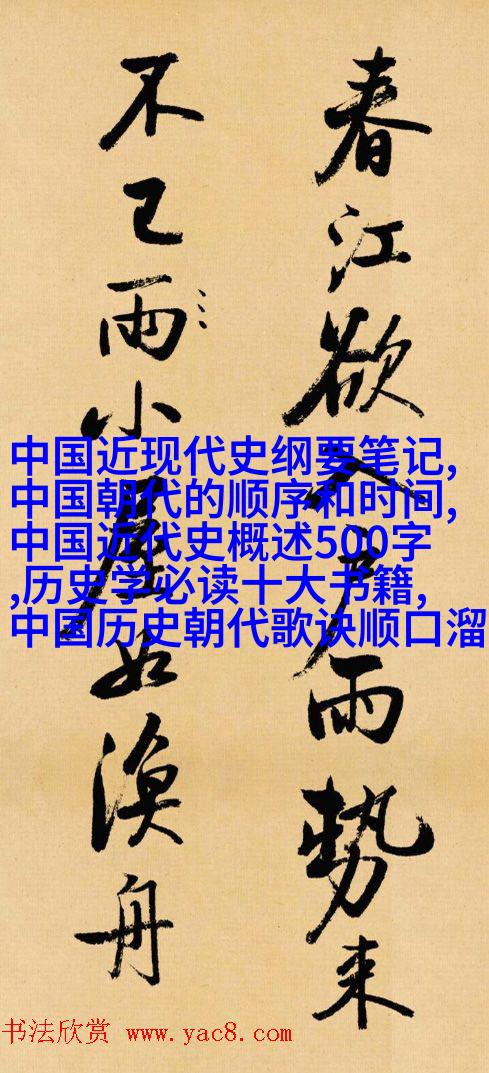 春江欲入户雨勢来
不已雨小屋如漁舟
中国近现代史纲要笔记,
中国朝代的顺序和时间,
中国近代史概述500字
,历史学必读十大书籍,
中国历史朝代歌诀顺口溜
书法欣赏 www.yac8.com